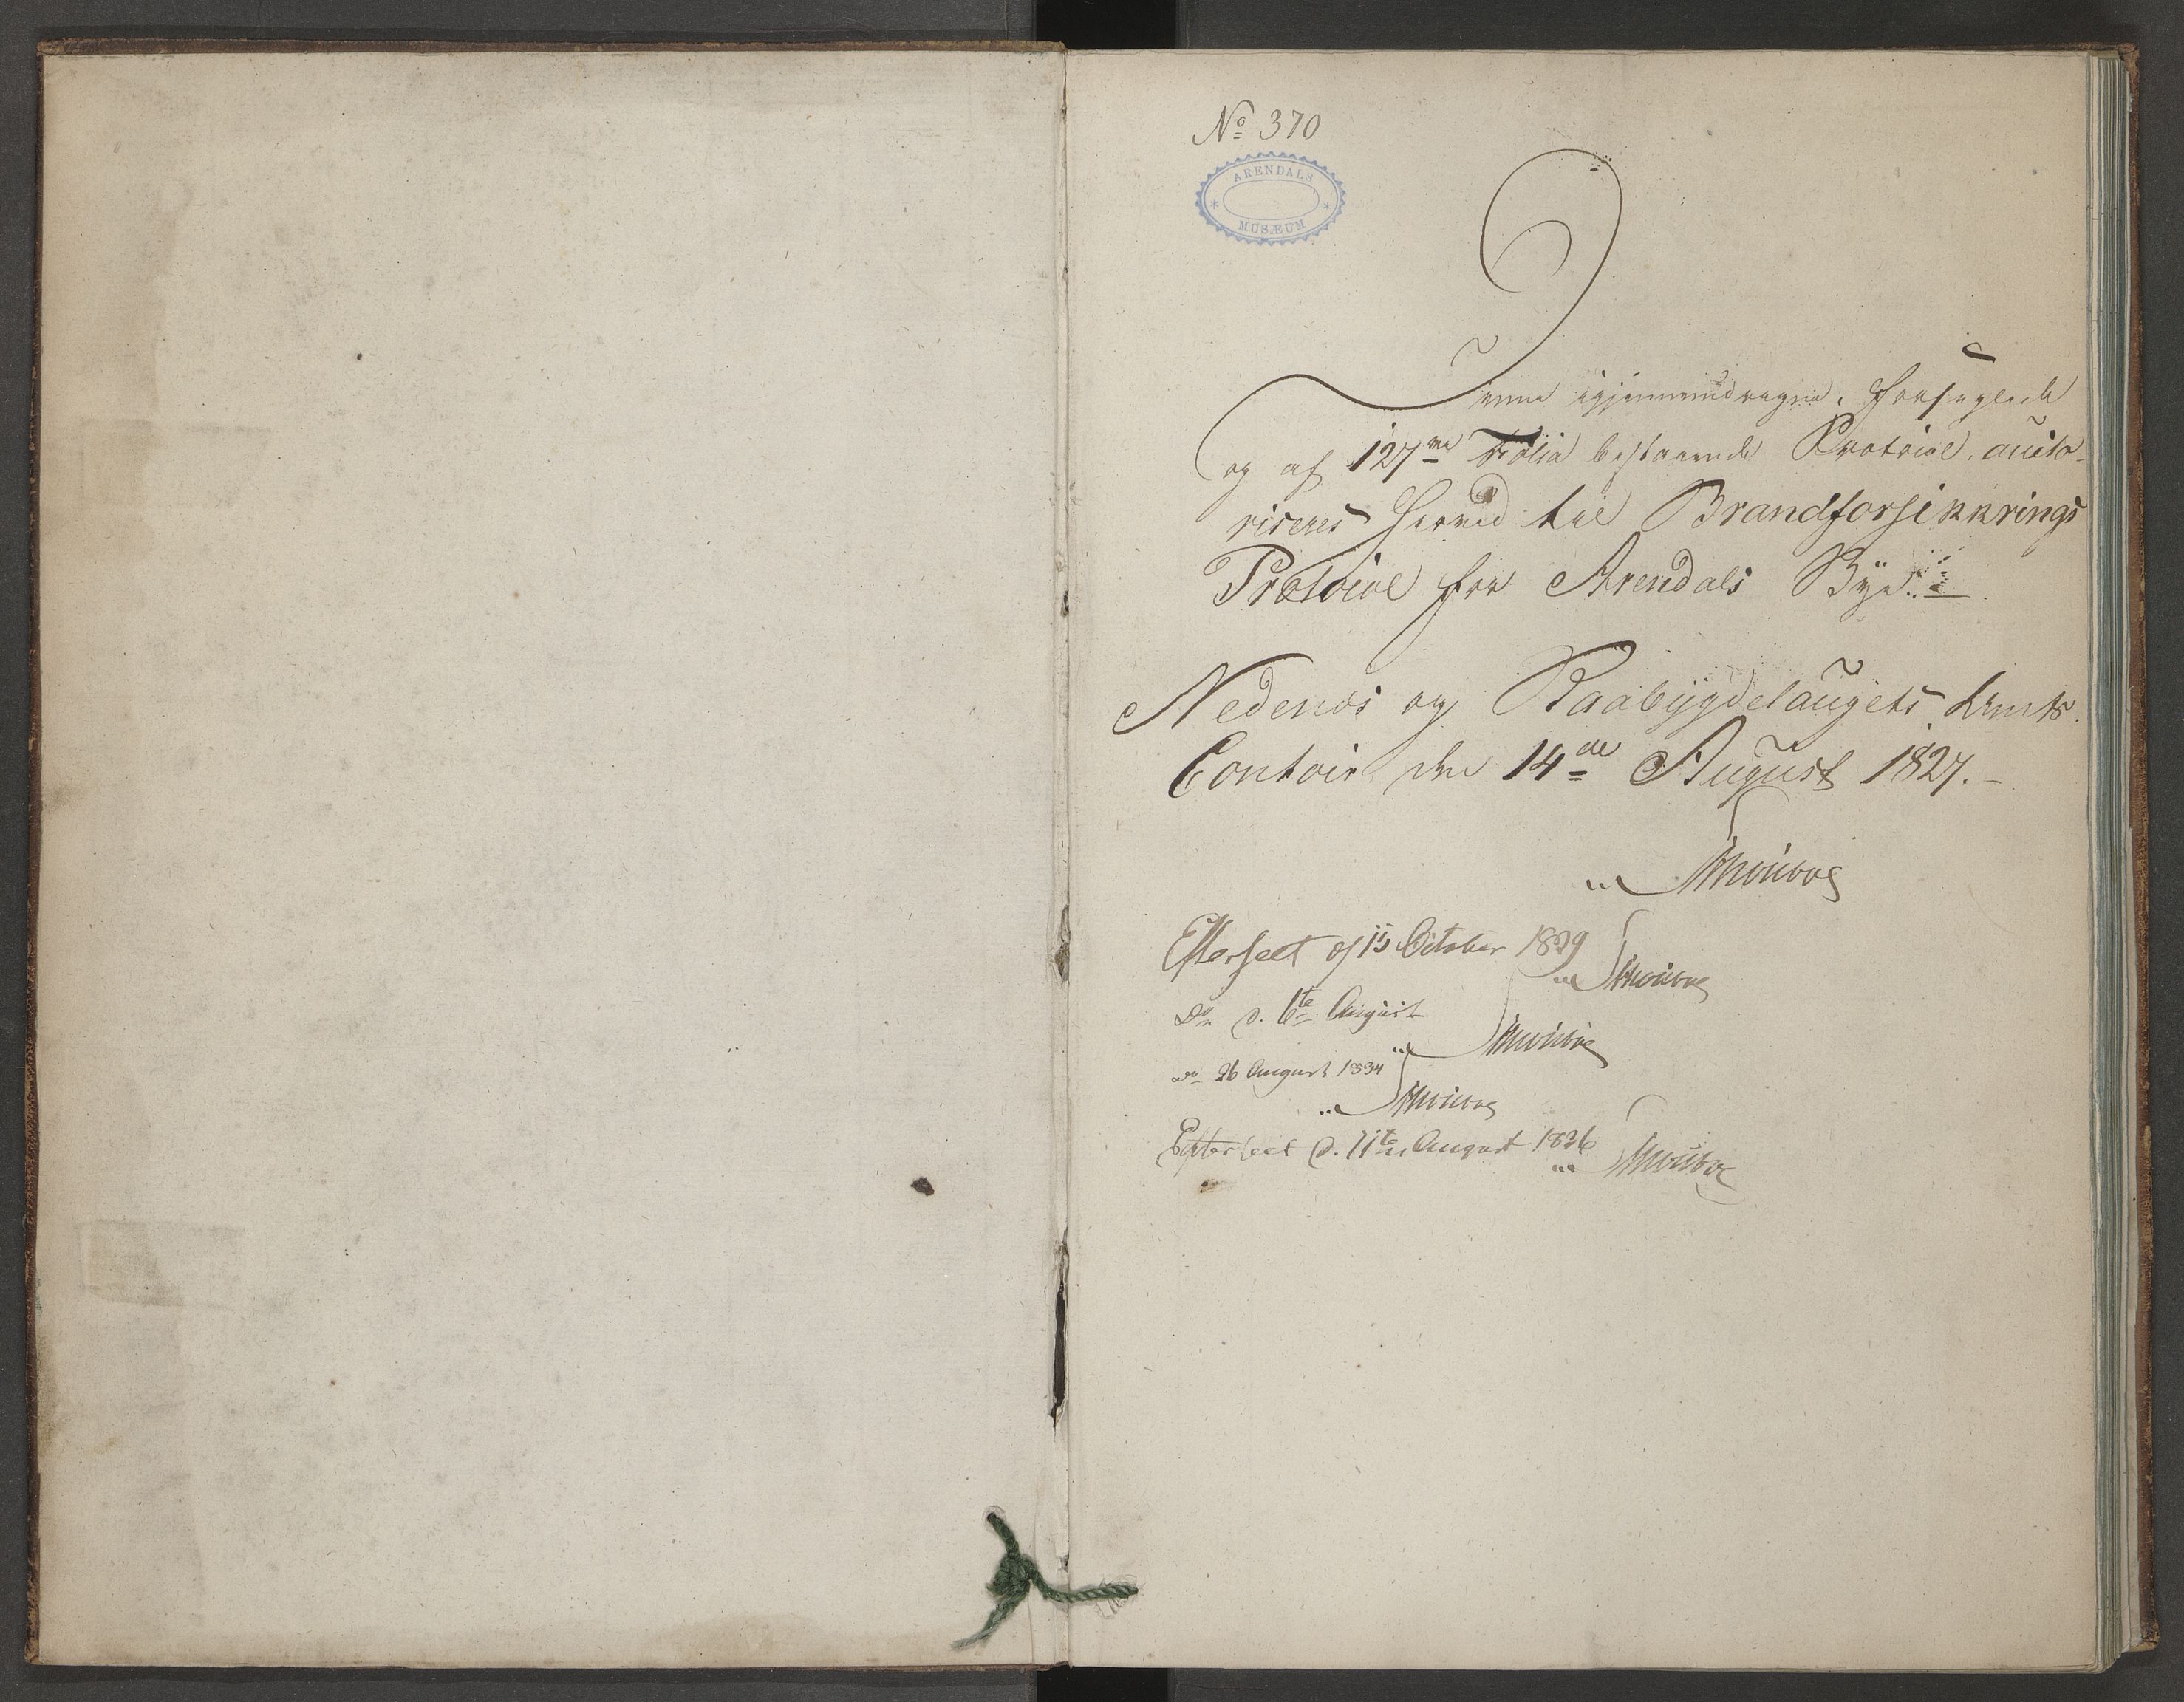 No 370
ARENDALS
MUSÆUM
Denne igjennemdragne, forseglede
og af 127ve Folia bestaaende Protocol, auto-
riseres herved til Brandforsikkrings
Protocol for Arendals Bye.
Nedenæs og Raabÿgdelaugets Amts
Contoir den 14de August 1827.
Efterseet d 15 October 1829
Do d. 6te August
do 26 August 1834
Efterseet d. 11te August 1836